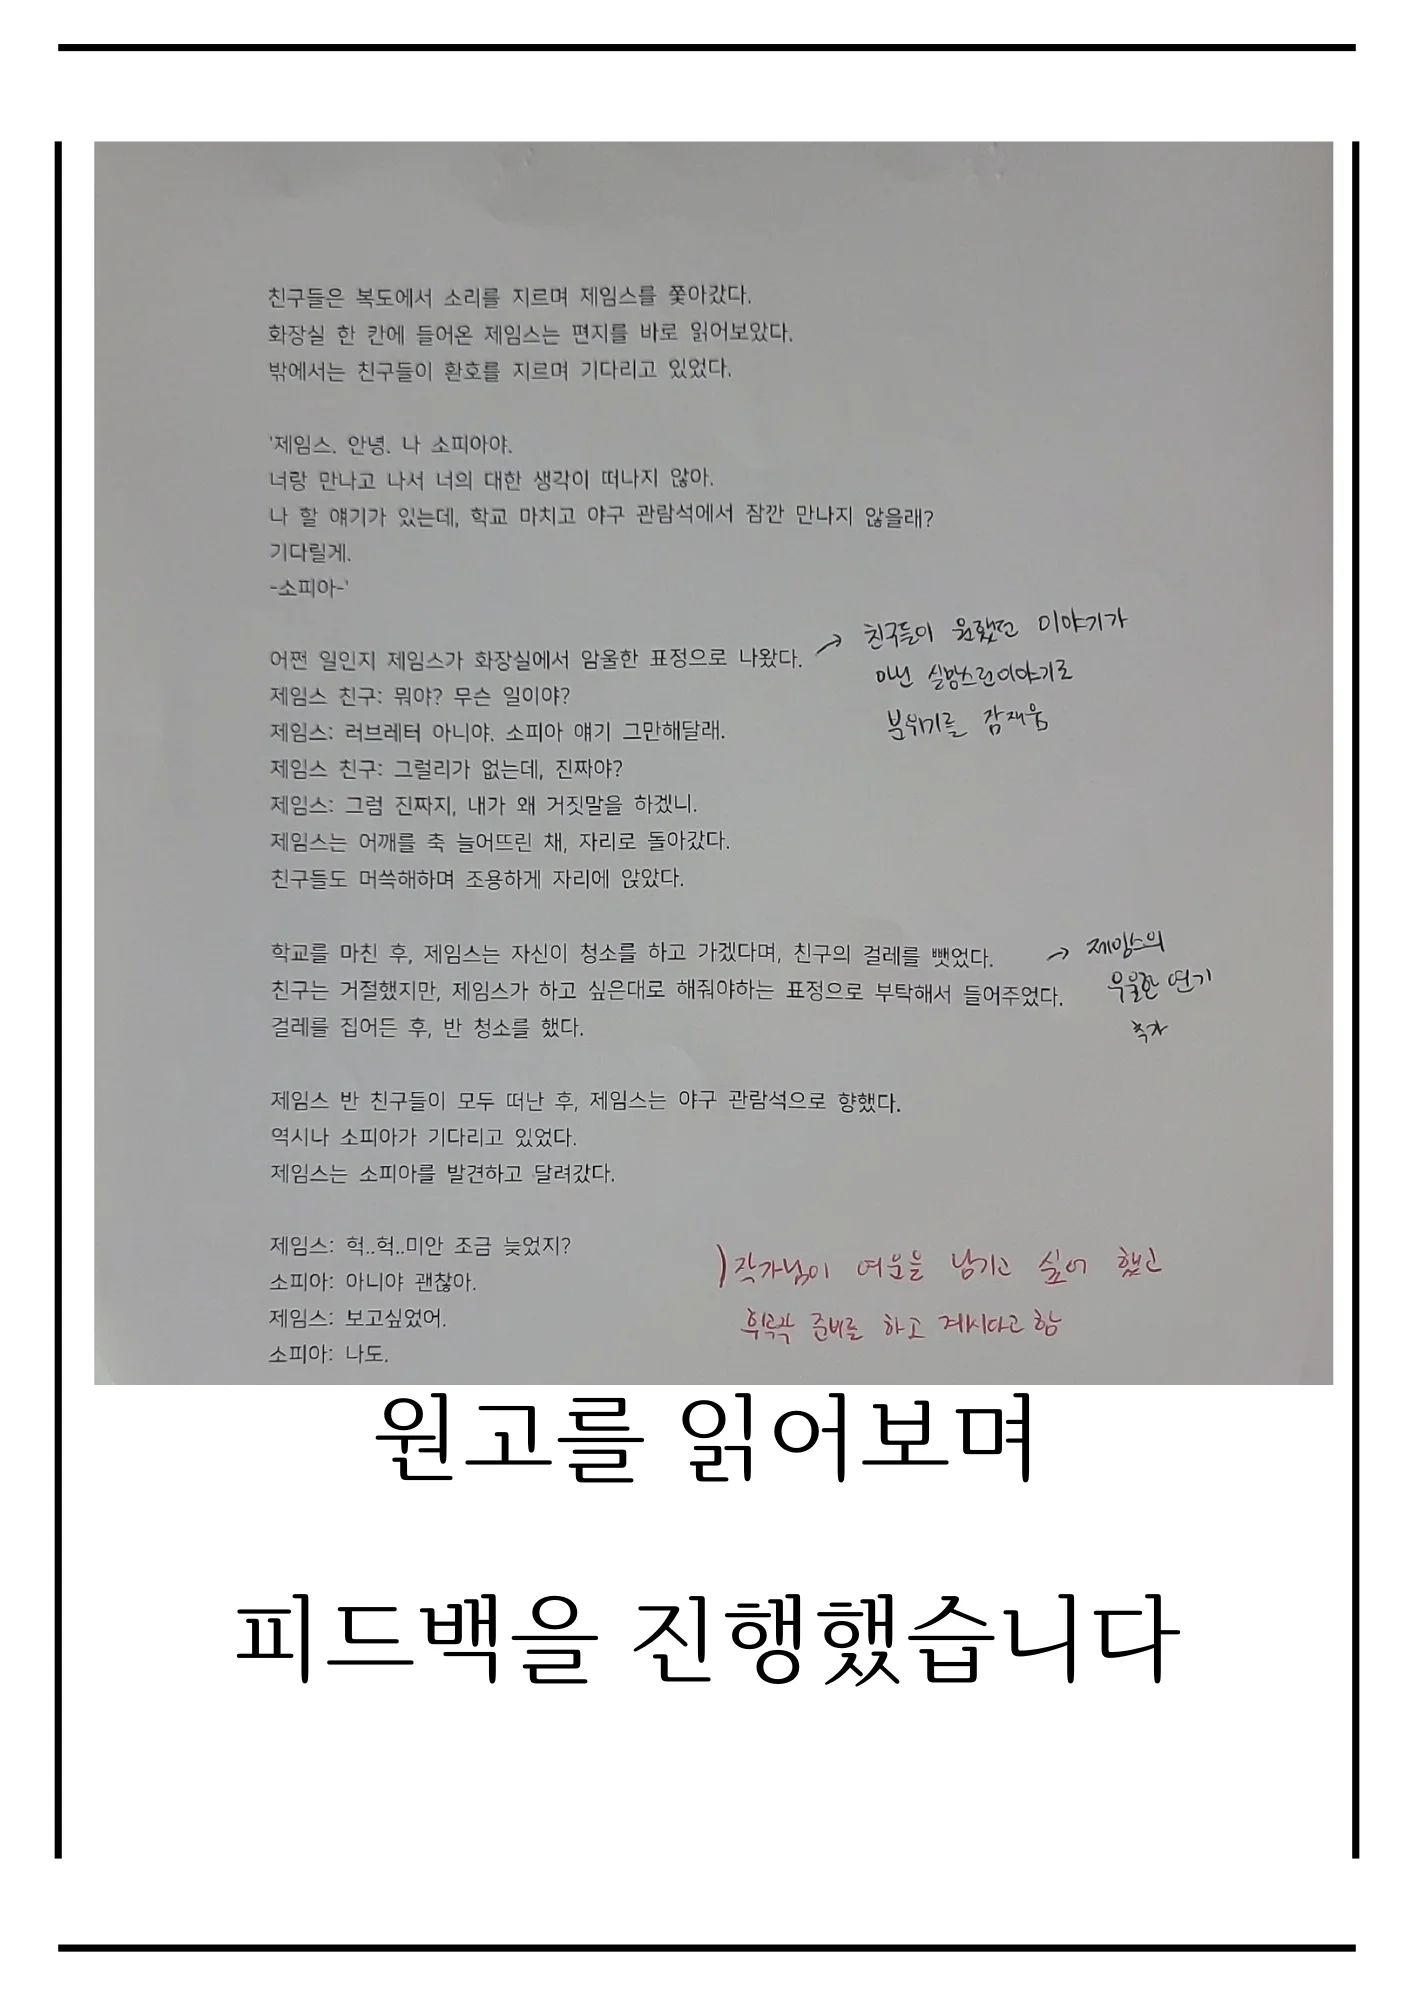 친구들은 복도에서 소리를 지르며 제임스를 쫓아갔다.
화장실 한 칸에 들어온 제임스는 편지를 바로 읽어보았다.
밖에서는 친구들이 환호를 지르며 기다리고 있었다.
'제임스. 안녕. 나 소피아야.
너랑 만나고 나서 너의 대한 생각이 떠나지 않아.
나 할 얘기가 있는데, 학교 마치고 야구 관람석에서 잠깐 만나지 않을래?
기다릴게.
-소피아-'
어쩐 일인지 제임스가 화장실에서 암울한 표정으로 나왔다.
→ 친구들이 원했던 이야기가
아닌 실망스런이야기로
분위기를 잠재움
제임스 친구: 뭐야? 무슨 일이야?
제임스: 러브레터 아니야. 소피아 얘기 그만해달래.
제임스 친구: 그럴리가 없는데, 진짜야?
제임스: 그럼 진짜지, 내가 왜 거짓말을 하겠니.
제임스는 어깨를 축 늘어뜨린 채, 자리로 돌아갔다.
친구들도 머쓱해하며 조용하게 자리에 앉았다.
학교를 마친 후, 제임스는 자신이 청소를 하고 가겠다며, 친구의 걸레를 뺏었다.
친구는 거절했지만, 제임스가 하고 싶은대로 해줘야하는 표정으로 부탁해서 들어주었다.
걸레를 집어든 후, 반 청소를 했다.
→ 제임스의
우울한 연기
추가
제임스 반 친구들이 모두 떠난 후, 제임스는 야구 관람석으로 향했다.
역시나 소피아가 기다리고 있었다.
제임스는 소피아를 발견하고 달려갔다.
제임스: 헉..헉..미안 조금 늦었지?
소피아: 아니야 괜찮아.
제임스: 보고싶었어.
소피아: 나도.
)작가님이 여운을 남기고 싶어 했고
후속작 준비를 하고 계시다고 함
원고를 읽어보며
피드백을 진행했습니다